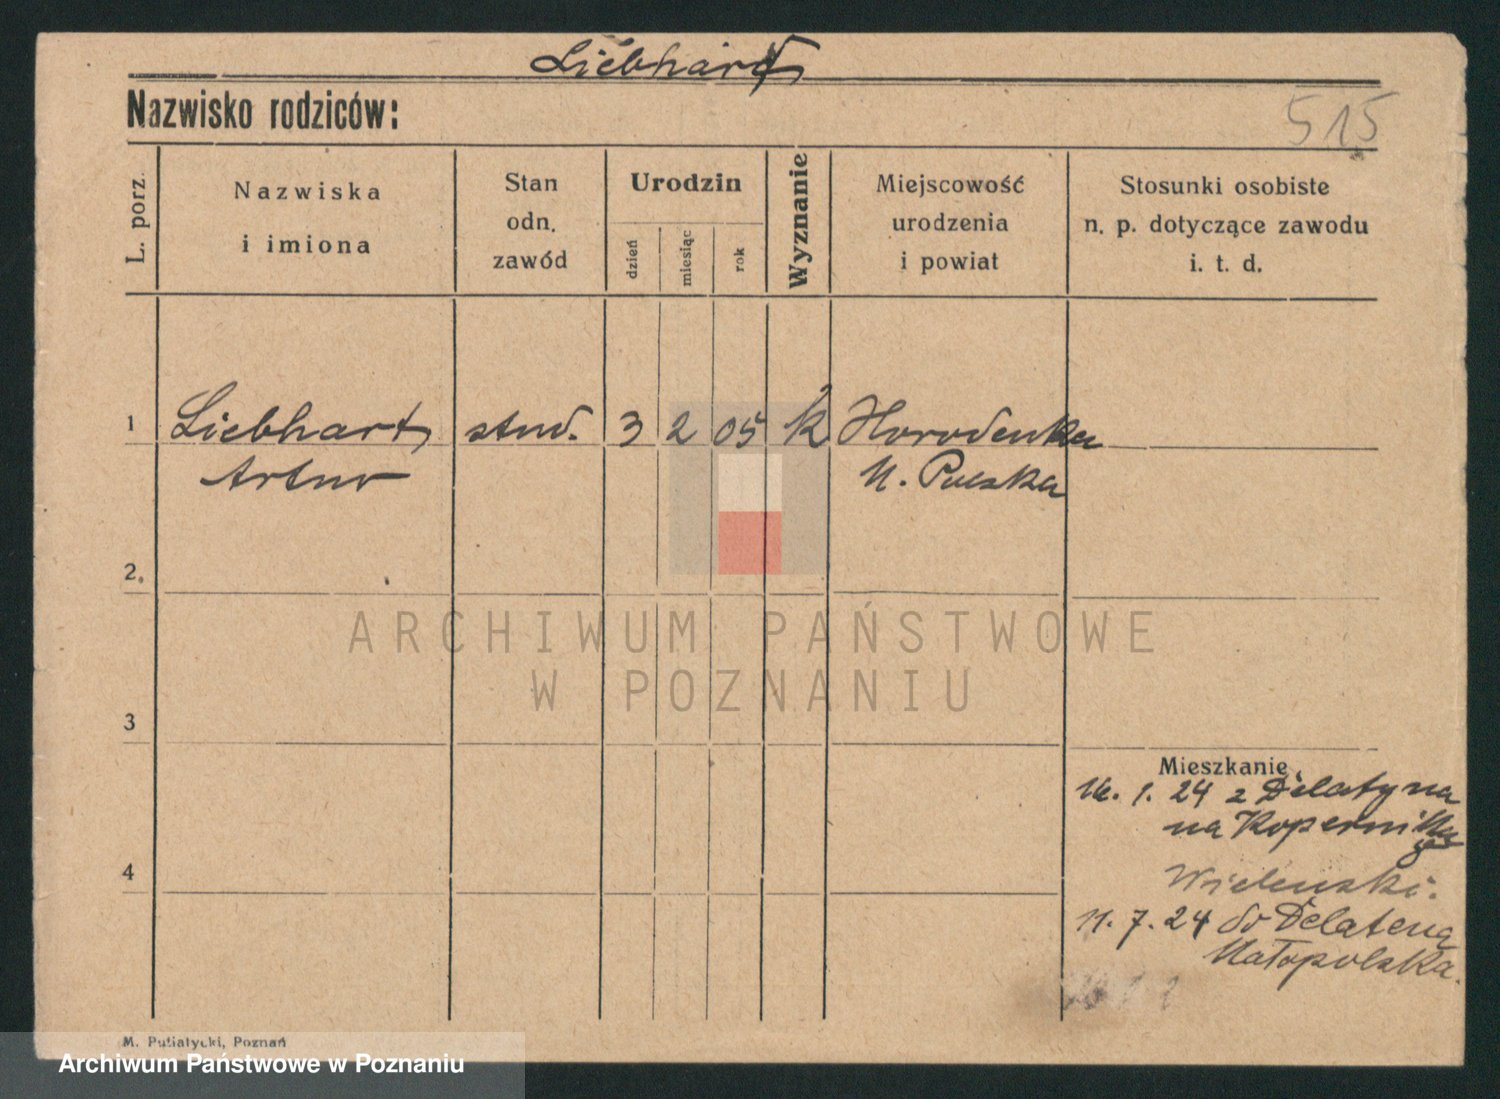 Liebhart
Nazwisko rodziców:
515
L. porz.
Nazwiska
i imiona
Stan
odn.
zawód
Urodzin
dzień
miesiąc
rok
Wyznanie
Miejscowość
urodzenia
i powiat
Stosunki osobiste
n. p. dotyczące zawodu
i. t. d.
1 Liebhart stud. 3 2 05 k Horodenka
Artur M. Polska
2.
ARCHIWUM PAŃSTWOWE
W POZNANIU
3
Mieszkanie
16. 1. 24 z Delatyna
na Kopernika
4
Wielenski.
11. 7. 24 do
Małopolska.
M. Putiatycki, Poznań
Archiwum Państwowe w Poznaniu